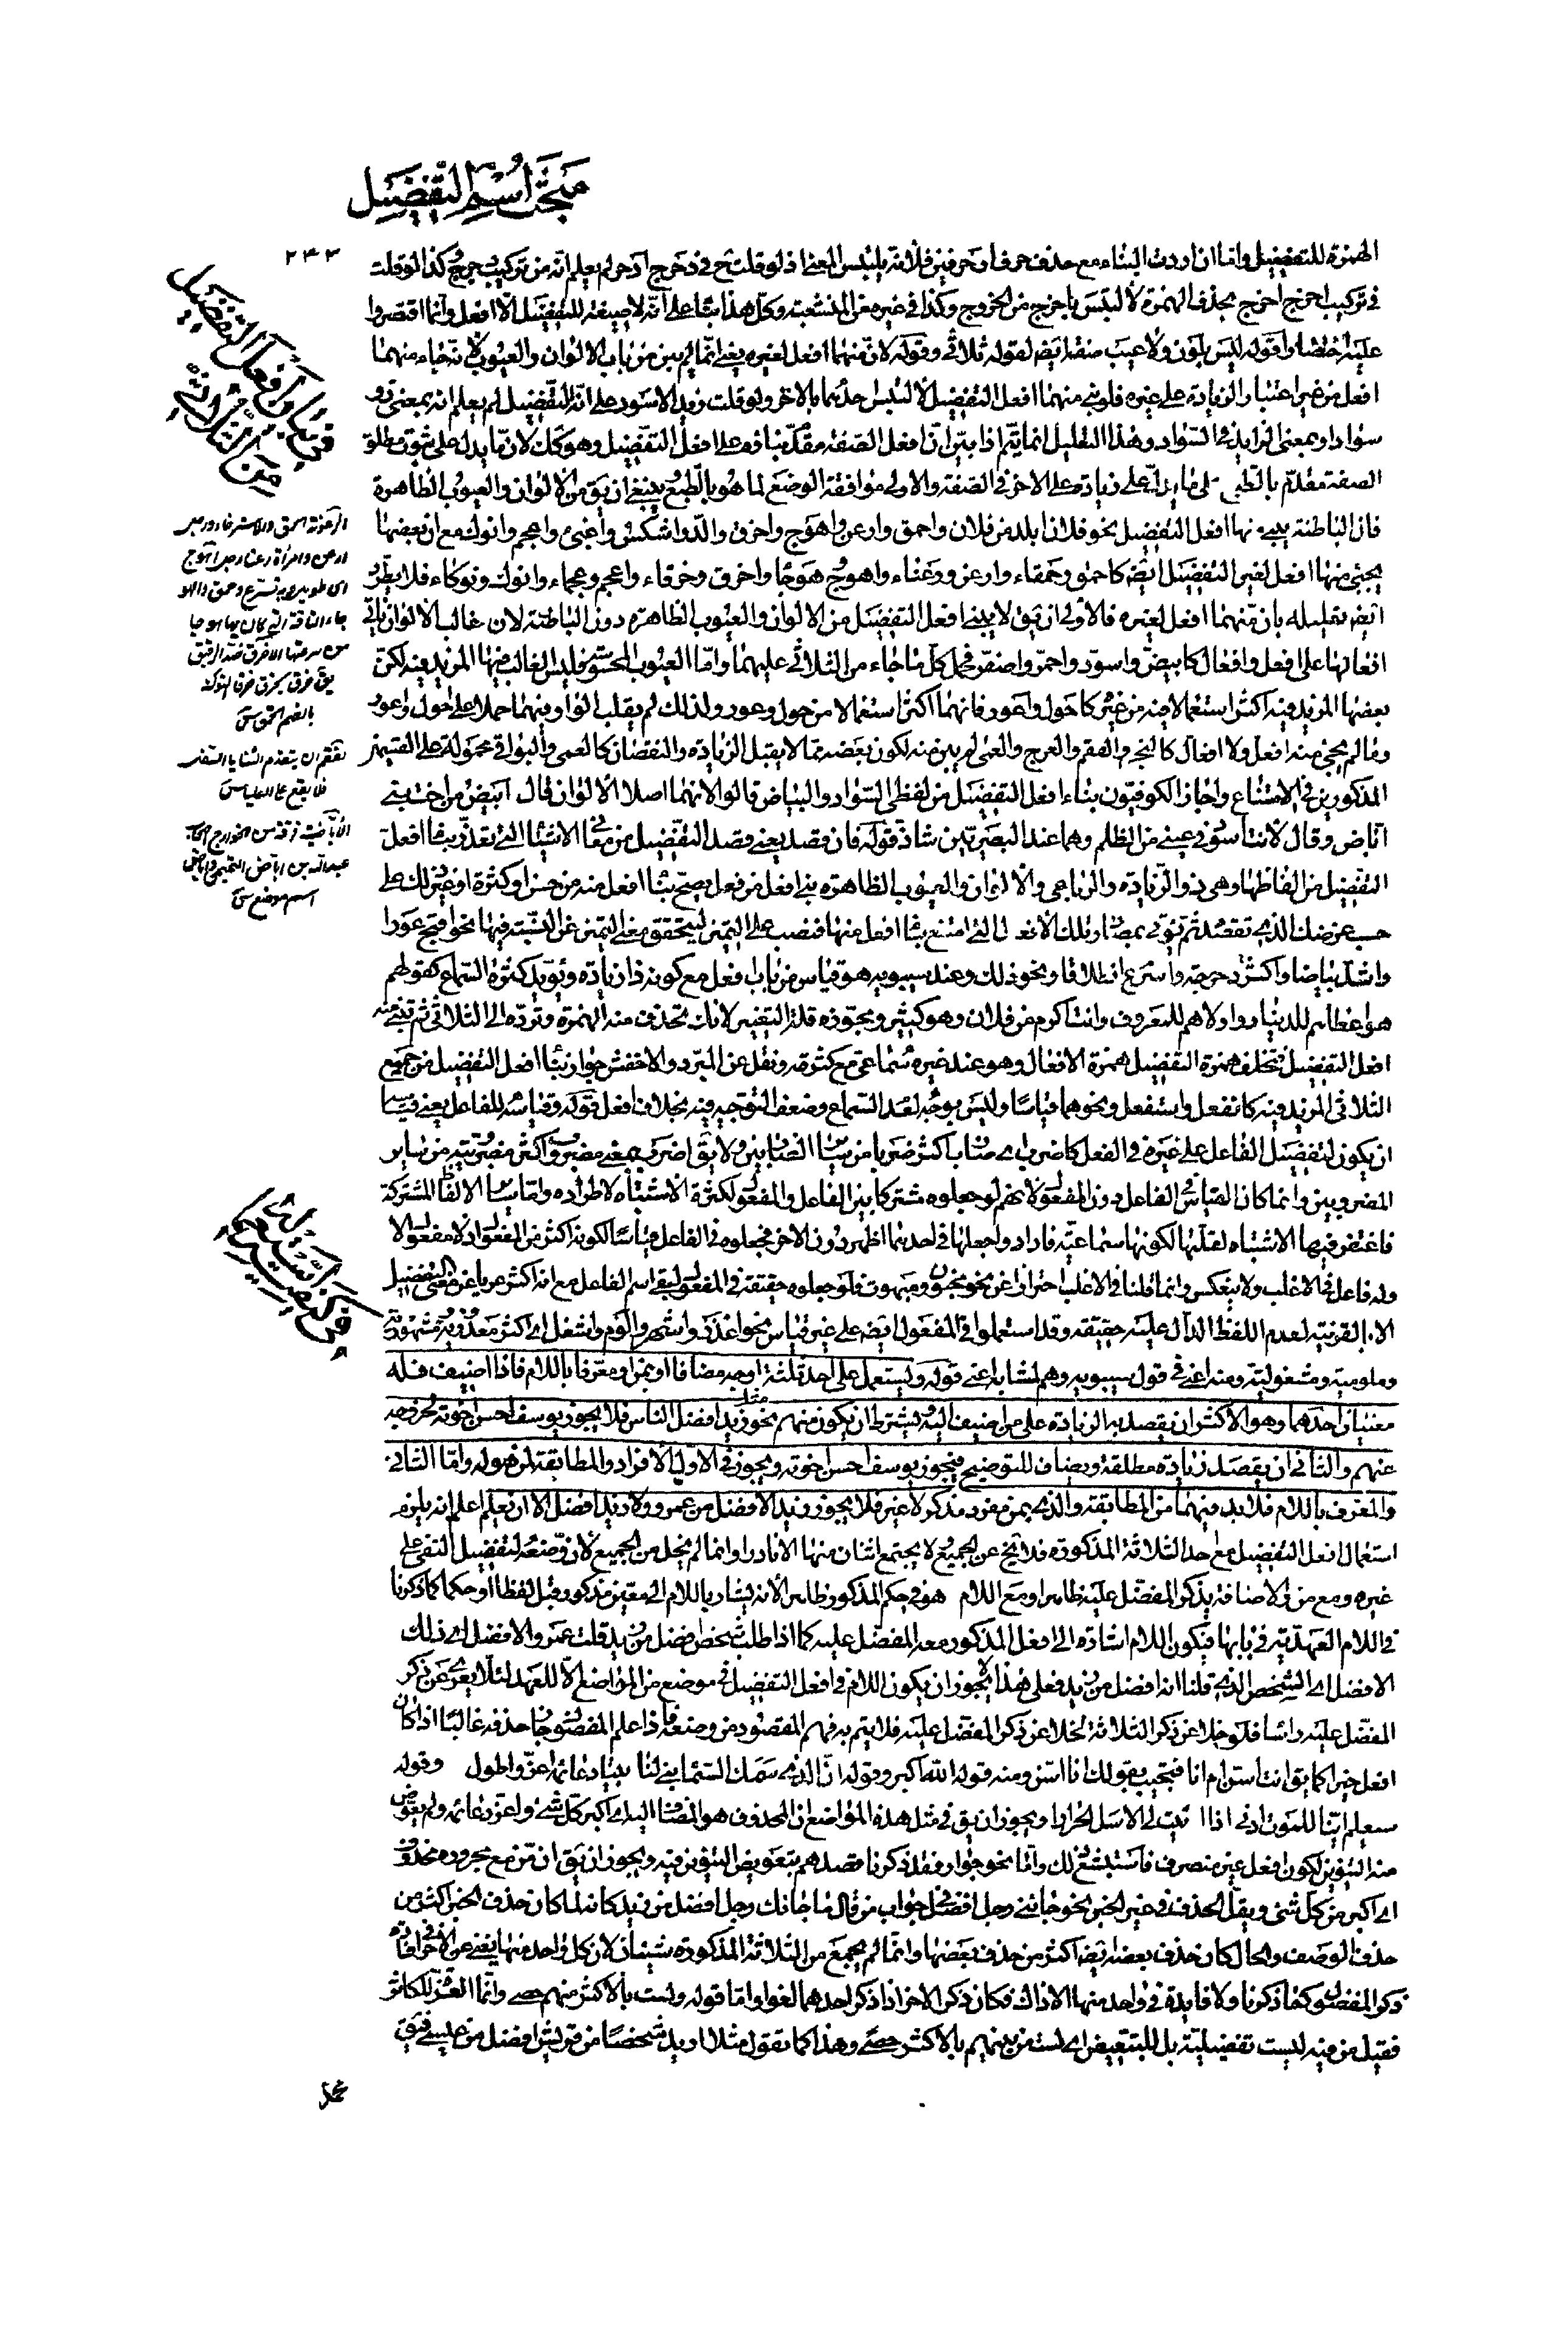 مبحث اسم التفضيل
٢٤٣
الهمزة للتفضيل واما ان اردت البناء مع حذف حرف او حرفين فلانه يلتبس المعنى اذ لو قلت مثلا فى دحرج ادحر لم يعلم انه من تركيب دحرج كذا لو قلت
فى تركيب اخرج اخرج بحذف الهمزة لالتبس باخرج من الخروج وكذا فى غيره من المتشعبة وكل هذا بناء على انه لا صيغة للتفضيل الا افعل وانما اقتصروا
عليه اختصارا قوله ليس بلون ولا عيب صفة ايضا لقوله ثلاثى وقوله لان منهما افعل لغيره يعنى انما لم يبن من باب الالوان والعيوب لانه جاء منهما
افعل من غير اعتبار الزيادة على غيره فلو بنى منهما افعل التفضيل لالتبس احدهما بالاخر ولو قلت زيد الاسود على انه للتفضيل لم يعلم انه بمعنى ذو
سواد او بمعنى الزايد فى السواد وهذا التعليل انما يتم اذا بين ان افعل الصفة مقدم بناؤه على افعل التفضيل وهو كك لان ما يدل على ثبوت مطلق
الصفة مقدم بالطبع على ما يدل على زيادة على الاخر فى الصفة والاولى موافقة الوضع لما هو بالطبع ينبغى ان يق من الالوان والعيوب الظاهرة
فان الباطنة يبنى منها افعل التفضيل نحو فلان ابلد من فلان واحمق وارعن واهوج واخرق والد واشكس واعيى واعجم وانوك مع ان بعضها
يجئ منها افعل لغير التفضيل ايضا كاحمق وحمقاء وارعن ورعناء واهوج هوجاء واخرق وخرقاء واعجم وعجماء وانوك ونوكاء فلا يطرد
ايضا تعليله بان منهما افعل لغيره فالاولى ان يق لا يبنى افعل التفضيل من الالوان والعيوب الظاهرة دون الباطنة لان غالب الالوان ياتى
افعالها على افعل وافعال كابيض واسود واحمر واصفر فحمل كل ما جاء من الثلاثى عليهما واما العيوب المحسوسة فليس الغالب فيها المزيد فيه لكن
بعضها المزيد فيه اكثر استعمالا منه من غيره كاحول واعور فانهما اكثر استعمالا من حول وعور ولذلك لم يقلب الواو فيهما حملا على احول واعور
وما لم يجئ منه افعل ولا افعال كالبخر والفقم والعرج والعمى لم يبن منه لكون بعضه مما لا يقبل الزيادة والنقصان كالعمى والبواقى محمولة على القسمين
المذكورين فى الامتناع واجاز الكوفيون بناء افعل التفضيل من لفظى السواد والبياض قالوا لانهما اصلا الالوان قال ابيض من اخت بنى
اباض وقال لانت اسود فى عينى من الظلم وهما عند البصريين شاذ قوله فان قصد يعنى قصد التفضيل من معانى الاشياء التى تعذر بناء افعل
التفضيل من الفاظها وهى ذو الزيادة والرباعى والالوان والعيوب الظاهرة بنى افعل من فعل يصح بناء افعل منه من حسن او كثرة او غير ذلك على
حسب غرضك الذى تقصده ثم تؤتى بمصادر تلك الافعال التى امتنع بناء افعل منها فتنصب على التميز ليتحقق معنى التميز عن النسبة فيها نحو اقبح عورا
واشد بياضا واكثر دحرجة واسرع انطلاقا ونحو ذلك وعند سيبويه هو قياس من باب افعل مع كونه ذا زيادة ويؤيد كثرة السماع كقولهم
هو اعطاهم للدينار واولاهم للمعروف وانت اكرم من فلان وهو كثير ويجوزه قلة التغيير لانك تحذف منه الهمزة وترده الى الثلاثى ثم تبنى منه
افعل التفضيل فتخلف همزة التفضيل همزة الافعال وهو عند غيره سماعى مع كثرته ونقل عن المبرد والاخفش جواز بناء افعل التفضيل من جميع
الثلاثى المزيد فيه كانفعل واستفعل ونحوهما قياسا وليس بوجه لعدم السماع وضعف التوجيه فيه بخلاف افعل قوله وقياسه للفاعل يعنى قياسه
ان يكون لتفضيل الفاعل على غيره فى الفعل كاضرب اى ضارب اكثر ضربا من ساير الضاربين ولا يق اضرب بمعنى مضروب اكثر مضروبية من ساير
المضروبين وانما كان القياس فى الفاعل دون المفعول لانهم لو جعلوه مشتركا بين الفاعل والمفعول لكثرة الاشتباه لاطراده واما ساير الالفاظ المشتركة
فاغتفر فيها الاشتباه لقلتها لكونها سماعية فارادوا جعلها فى احدهما اظهر دون الاخر فجعلوه فى الفاعل قياسا لكونه اكثر من المفعول اذ لا مفعول الا
وله فاعل فى الاغلب ولا ينعكس وانما قلنا فى الاغلب احترازا عن نحو مجنون ومبهوت فلو جعلوه حقيقة فى المفعول لبقى اسم الفاعل مع انه اكثر عريا عن معنى التفضيل
الا بالقرينة لعدم اللفظ الدال عليه حقيقة وقد استعملوا فى المفعول ايضا على غير قياس نحو اعذر واشهر والوم واشغل اى اكثر معذورية ومشهورية
وملومية ومشغولية ومنه اعنى فى قول سيبويه وهم لشانه اعنى قوله ويستعمل على احد ثلثة اوجه مضافا او بمن او معرفا باللام فاذا اضيف فله
معنيان احدهما وهو الاكثر ان يقصد به الزيادة على من اضيف اليه ويشترط ان يكون منهم مثل نحو زيد افضل الناس فلا يجوز يوسف احسن اخوته لخروجه
عنهم والثانى ان يقصد زيادة مطلقة ويضاف للتوضيح فيجوز يوسف احسن اخوته ويجوز فى الاول الافراد والمطابقة لمن هو له واما الثانى
والمعرف باللام فلا بد فيهما من المطابقة والذى بمن مفرد مذكر لا غير فلا يجوز زيد الافضل من عمرو ولا زيد افضل الا ان يعلم اعلم انه يلزم
استعمال افعل التفضيل مع احد الثلاثة المذكورة فلا يخ عن الجميع ولا يجتمع اثنان منها الا نادرا وانما لم يخل من الجميع لان وضعه لتفضيل الشئ على
غيره ومع من فى الاضافة يذكر المفضل عليه ظاهرا ومع اللام هو فى حكم المذكور ظاهرا لانه يشار باللام الى معين مذكور قبل لفظا او حكما كما ذكرنا
فى اللام العهدية فى بابها فتكون اللام اشارة الى افعل المذكور معه المفضل عليه كما اذا طلب شخص افضل من زيد قلت عمرو الافضل اى ذلك
الافضل اى الشخص الذى قلنا انه افضل من زيد فعلى هذا لا يجوز ان يكون اللام فى افعل التفضيل فى موضع من المواضع الا للعهد لئلا يعرى عن ذكر
المفضل عليه راسا فلو خلا عن ذكر الثلاثة لخلا عن ذكر المفضل عليه فلا يتم به فهم المقصود من وضعه فاذا علم المفضول جاز حذفه غالبا اذا كان
افعل خبرا كما يق انت اسن ام انا فتجيب بقولك انا اسن ومنه قوله الله اكبر وقوله ان الذى سمك السماء بنى لنا بيتا دعائمه اعز واطول وقوله
ستعلم اينا للموت ادنى اذا ادنيت لى الاسل الحرارا ويجوز ان يق فى مثل هذه المواضع ان المحذوف هو المضاف اليه اى اكبر كل شئ واعز دعائمه ولم يعوض
منه التنوين لكون افعل غير منصرف فاستبشع ذلك واما نحو جوار فقد ذكرنا قصدهم بتعويض التنوين فيه ويجوز ان يق ان من مع مجروره محذوف
اى اكبر من كل شئ ويقل الحذف فى غير الخبر نحو جائنى رجل افضل فى جواب من قال ما جائك رجل افضل من زيد كانه لما كان حذف الخبر اكثر من
حذف الوصف والحال كان حذف بعضه ايضا اكثر من حذف بعضها وانما لم يجمع من الثلاثة المذكورة شيئان لان كل واحد منها يغنى عن الاخر فى افادة
ذكر المفضول كما ذكرنا ولا فايدة فى واحد منها الا ذاك فكان ذكر الاخر اذا ذكر احدهما لغوا واما قوله ولست بالاكثر منهم حصى وانما العزة للكاثر
فقيل من فيه ليست تفضيلية بل للتبعيض اى لست من بينهم بالاكثر حصى وهذا كما تقول مثلا اريد شخصا من قريش افضل من عيسى فيق
محمد
فى بناء افعل التفضيل
الرعونة الحمق والاسترخاء ورجل
ارعن وامراة رعناء رجل اهوج
اى طويل وبه تسرع وحمق والهو
جاء الناقة التى كان بها هوجا
من سرعتها الاخرق ضد الرفيق
يق خرق يخرق خرقا النوك
بالضم الحمق س
الفقم ان يتقدم الثنايا السفلى
فلا يقع على العليا س
الاباضية فرقة من الخوارج اصحاب
عبدالله بن اباض التميمى واباض
اسم موضع س